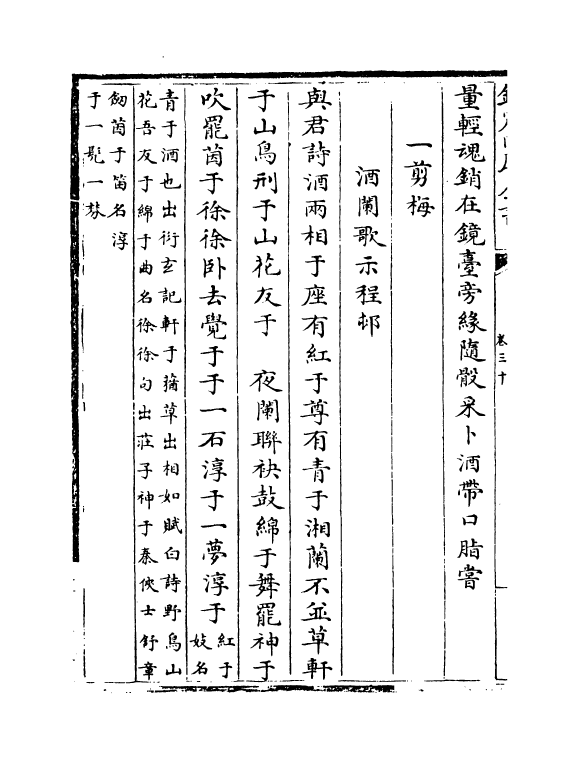 卷三十
量輕魂銷在鏡臺旁緣隨骰采卜酒帶口脂嘗
一剪梅
酒闌歌示程邨
與君詩酒兩相于座有紅于尊有青于湘蘭不並草軒
于山鳥刑于山花友于　夜闌聯袂鼓綿于舞罷神于
吹罷茵于徐徐卧去覺于于一石淳于一夢淳于紅于妓名
青于酒也出衍玄記軒于蕕草出相如賦白詩野鳥山
花吾友于綿于曲名徐徐句出莊子神于秦俠士舒章
茵于笛名淳
于一髡一棼